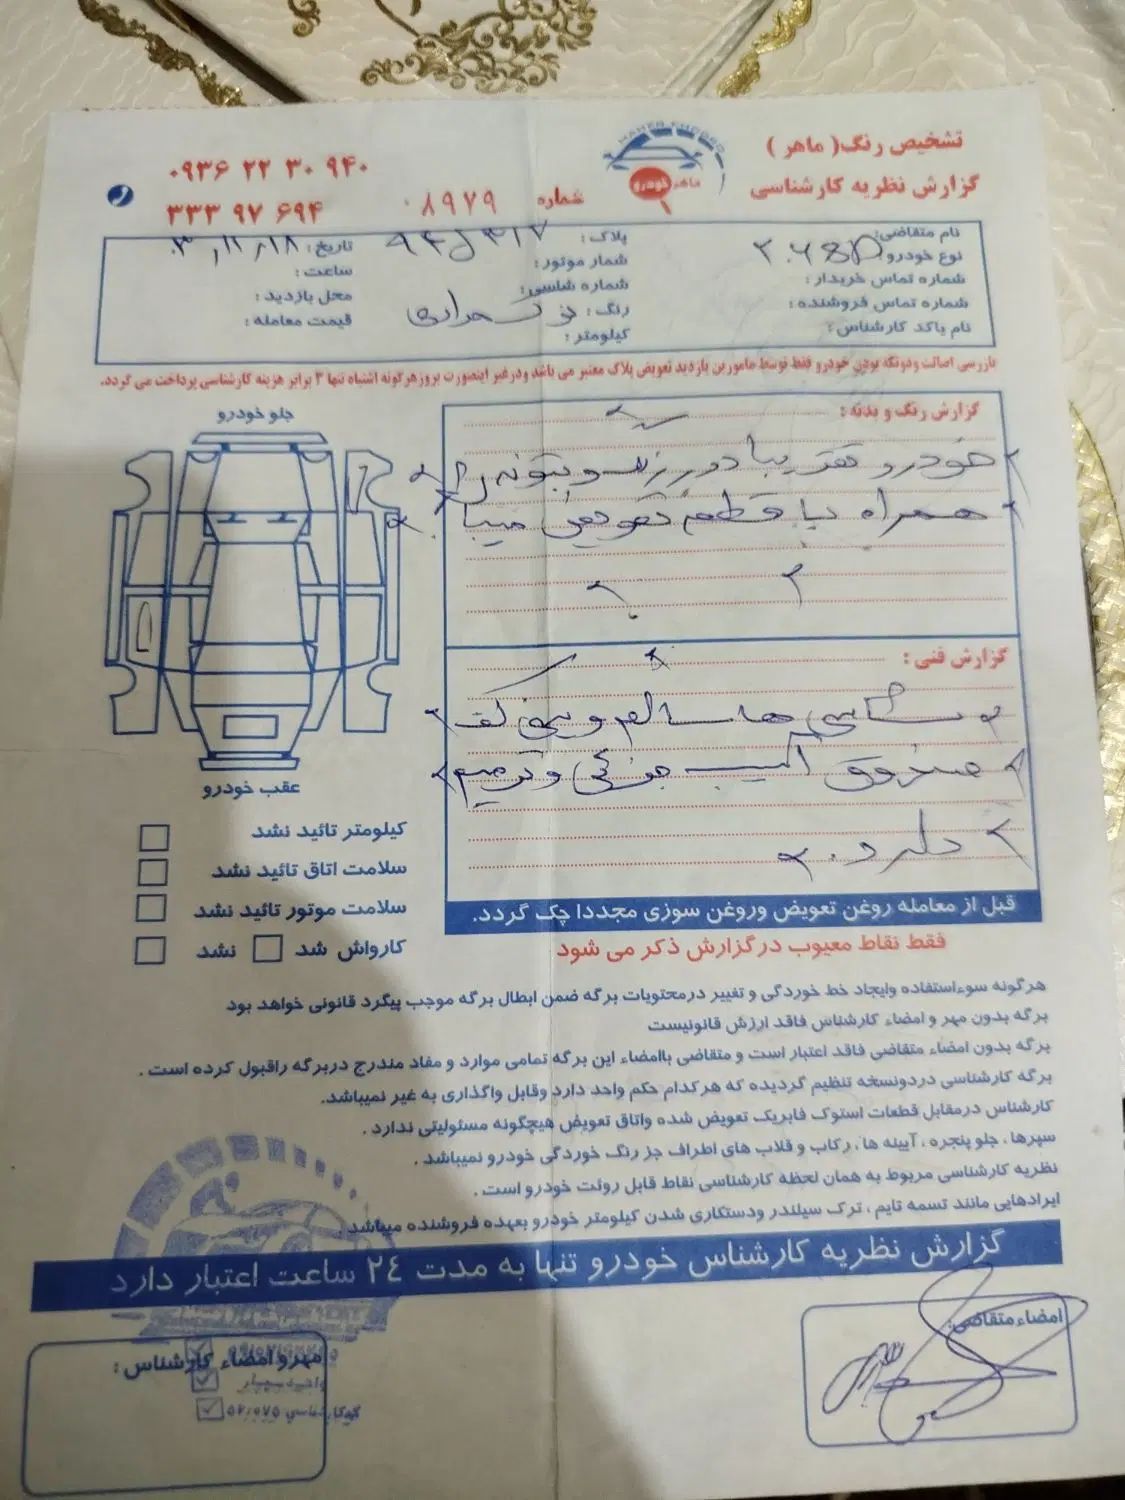 تشخیص رنگ( ماهر )
گزارش نظریه کارشناسی
MAHER KHODRO
ماهر خودرو
شماره ۰۸۹۷۹
۰۹۳۶ ۲۲ ۳۰ ۹۴۰
۳۳۳ ۹۷ ۶۹۴
نام متقاضی:
نوع خودرو: ۲۰۶ SD
شماره تماس خریدار:
شماره تماس فروشنده:
نام یاکد کارشناس:
پلاک:
شمار موتور:
شماره شاسی:
رنگ: نوک مدادی
کیلومتر:
تاریخ: ۰۳/۱۱/۱۸
ساعت:
محل بازدید:
قیمت معامله:
بازرسی اصالت ودوتکه بودن خودرو فقط توسط مامورین بازدید تعویض پلاک معتبر می باشد ودرغیر اینصورت بروزهرگونه اشتباه تنها ۳ برابر هزینه کارشناسی پرداخت می گردد.
گزارش رنگ و بدنه:
خودرو تقریبا دور رنگ و بتونه
همراه با قطعه تعویض میبا
گزارش فنی:
شاسی ها سالم و سینی کف
صندوق آسیب جزئی و ترمیم
دارد.
جلو خودرو
عقب خودرو
کیلومتر تائید نشد
سلامت اتاق تائید نشد
سلامت موتور تائید نشد
کارواش شد نشد
قبل از معامله روغن تعویض وروغن سوزی مجددا چک گردد.
فقط نقاط معیوب درگزارش ذکر می شود
هرگونه سوءاستفاده وایجاد خط خوردگی و تغییر درمحتویات برگه ضمن ابطال برگه موجب پیگرد قانونی خواهد بود
برگه بدون مهر و امضاء کارشناس فاقد ارزش قانونیست
برگه بدون امضاء متقاضی فاقد اعتبار است و متقاضی باامضاء این برگه تمامی موارد و مفاد مندرج دربرگه راقبول کرده است .
برگه کارشناسی دردونسخه تنظیم گردیده که هرکدام حکم واحد دارد وقابل واگذاری به غیر نمیباشد.
کارشناس درمقابل قطعات استوک فابریک تعویض شده واتاق تعویض هیچگونه مسئولیتی ندارد .
سپرها ، جلو پنجره ، آیینه ها ، رکاب و قلاب های اطراف جز رنگ خوردگی خودرو نمیباشد .
نظریه کارشناسی مربوط به همان لحظه کارشناسی نقاط قابل روئت خودرو است .
ایرادهایی مانند تسمه تایم ، ترک سیلندر ودستکاری شدن کیلومتر خودرو بعهده فروشنده میباشد
گزارش نظریه کارشناس خودرو تنها به مدت ۲۴ ساعت اعتبار دارد
امضاء متقاضی:
مهر و امضاء کارشناس: